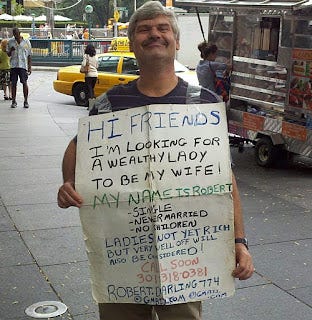 HI FRIENDS
I'M LOOKING FOR
A WEALTHY LADY
TO BE MY WIFE!
MY NAME IS ROBERT
-SINGLE
-NEVER MARRIED
-NO CHILDREN
LADIES NOT YET RICH
BUT VERY WELL OFF WILL
ALSO BE CONSIDERED!
CALL SOON
301 318 0381
ROBERT.DARLING774
@GMAIL.COM @GMAIL.
COM